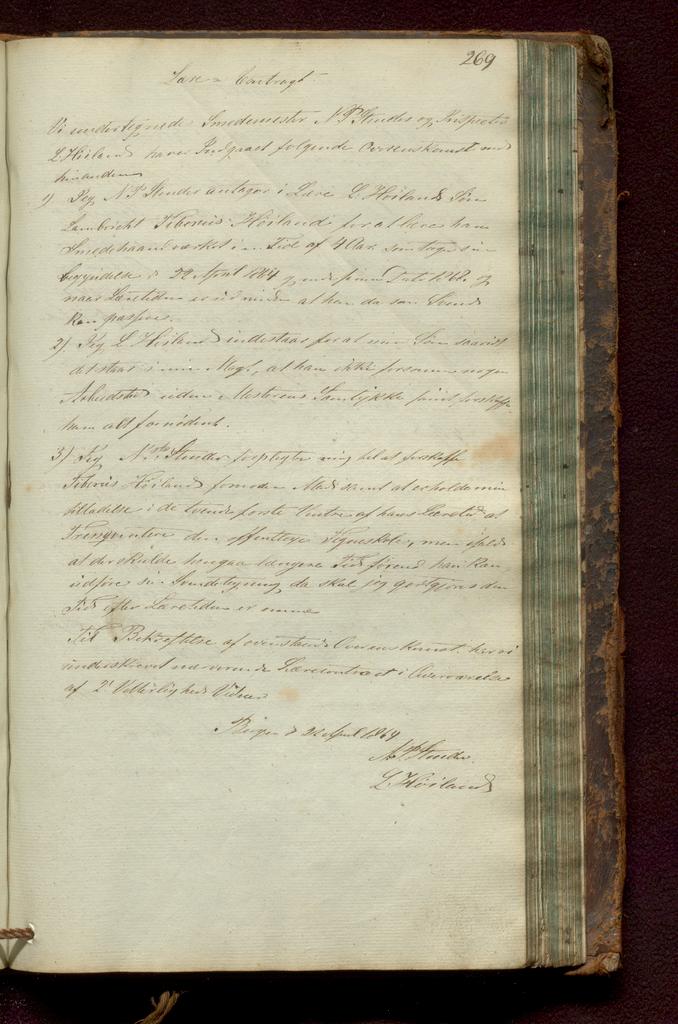 269
Lære-Contragt
Vi undertegnede Smedemester N. P. Stender og Inspecteur
L. Høiland have Indgaaet følgende Overenskomst med
hinanden
1) Jeg N. P. Stender antager i Lære L. Høilands Søn
Lambricht Tiberius Høiland for at lære ham
Smedehaandværket i en Tid af 4 Aar som tager sin
begyndelse d 22 April 1864 og ende samme Dato 1868 og
naar Læretiden er ud at han da som Svend
kan passere.
2) Jeg L. Høiland indestaar for at min Søn saavidt
det staar i min Magt, at han ikke forsømmer nogen
Arbeidstid uden Mesterens Samtykke samt forskaffe
ham alt fornødent.
3) Jeg N. P. Stender forpligter mig til at forskaffe
Tiberius Høiland fornøden Mad samt at erholde min
tilladelse i de tvende første Vintre af hans Læretid at
Frequentere den offentlige Tegneskole, men ifald
at der skulde hengaa længere Tid førend han kan
udføre sin Svendetegning da skal jeg godtgjøres den
Tid efter Læretiden er omme
Til Bekræftelse af ovenstaaende Overenskomst have vi
underskrevet nærværende Lærecontract i Overværelse
af 2de Vitterligheds Vidner
Bergen d 22 April 1864
N. P. Stender
L. Høiland